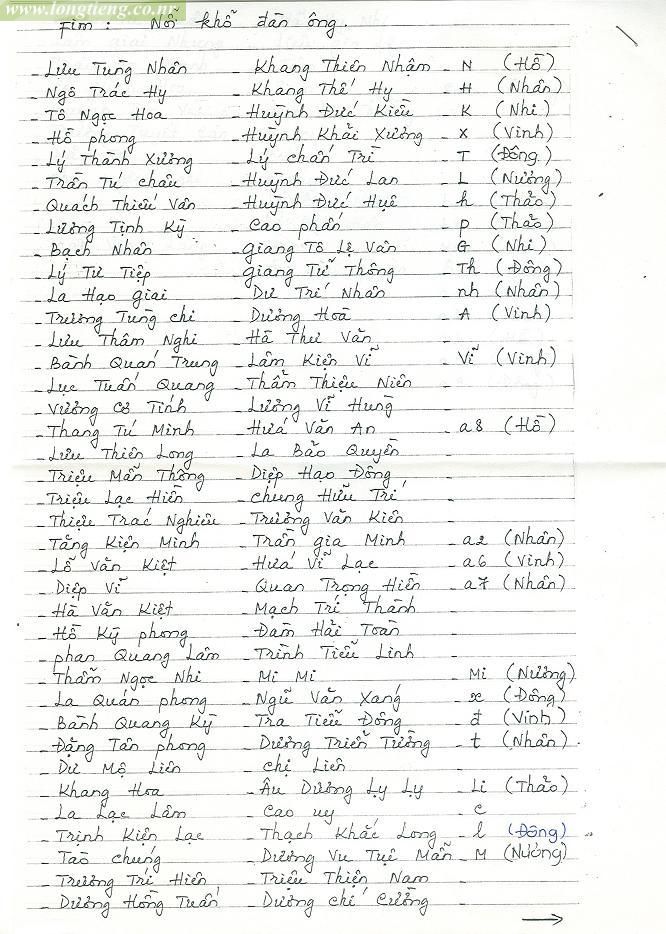 www.longtieng.co.nr
Fim : Nỗi khổ đàn ông.
- Lưu Tùng Nhân - Khang Thiên Nhậm - N (Hồ)
- Ngô Trác Hy - Khang Thế Hy - H (Nhân)
- Tô Ngọc Hoa - Huỳnh Đức Kiều - K (Nhi)
- Hồ phong - Huỳnh Khải Xương - X (Vinh)
- Lý Thành Xương - Lý chấn Trì - T (Đông)
- Trần Tú châu - Huỳnh Đức Lan - L (Nương)
- Quách Thiếu Vân - Huỳnh Đức Huệ - h (Thảo)
- Lương Tịnh Kỳ - Cao phấn - p (Thảo)
- Bạch Nhân - Giang Tô Lệ Vân - G (Nhi)
- Lý Tư Tiệp - Giang Tử Thông - Th (Đông)
- La Hạo giai - Dư Trí Nhân - nh (Nhân)
- Trương Tùng chi - Dương Hoà - A (Vinh)
- Lưu Thâm Nghi - Hà Thư Văn
- Bành Quan Trung - Lâm Kiện Vĩ - Vĩ (Vinh)
- Lục Tuấn Quang - Thẩm Thiệu Niên -
- Vương Cơ Tính - Lương Vĩ Hùng -
- Thang Tú Minh - Hứa Văn An - a8 (Hồ)
- Lưu Thiên Long - La Bảo Quyền -
- Triệu Mẫn Thông - Diệp Hạo Đông -
- Triệu Lạc Hiền - chung Hữu Trí -
- Thiệu Trác Nghiêu - Trương Văn Kiên -
- Tăng Kiện Minh - Trần gia Minh - a2 (Nhân)
- Lỗ Văn Kiệt - Hứa Vĩ Lạc - a6 (Vinh)
- Diệp Vĩ - Quan Trọng Hiền - a7 (Nhân)
- Hà Văn Kiệt - Mạch Trí Thành -
- Hồ Kỳ phong - Đàm Hải Toàn -
- phan Quang Lâm - Trình Tiểu Linh -
- Thẩm Ngọc Nhi - Mi Mi - Mi (Nương)
- La Quán phong - Ngũ Văn Xang - x (Đông)
- Bành Quang Kỳ - Tra Tiểu Đông - đ (Vinh)
- Đặng Tân phong - Dương Triển Tường - t (Nhân)
- Dư Mộ Liên - chị Liên -
- Khang Hoa - Âu Dương Ly Ly - Li (Thảo)
- La Lạc Lâm - Cao uy - c
- Trịnh Kiện Lạc - Thạch Khắc Long - l (Đông)
- Tào chúng - Dương Vu Tuệ Mẫn - M (Nương)
- Trương Trí Hiên - Triệu Thiện Nam -
- Dương Hồng Tuấn - Dương chí Cường -